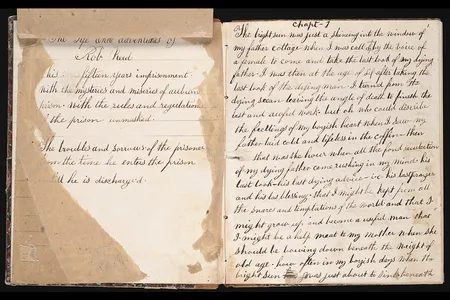 The life and adventures of
Rob Reed
his fifteen years imprisonment.
With the mysteries and miseries of auburn
prison. With the rules and regulations
of the prison unmasked.
The troubles and sorrows of the prisoner
from the time he enters the prison
till he is discharged.
Chapt- 1
The bright sun was just a shineing into the window of
my father cottage when I was called by the voice of
a female to come and take the last look of my dying
father. I was then at the age of after takeing the
last look of the dyeing man I turnd from the
dyeing scean leaveing the angle of death to finish the
last and awful work. but oh who could describe
the feelings of my boyish heart when I saw my
father laid cold and lifeless in the coffin. then
that was the hour when all the fond
of my dying father came rushing in my mind. his
last look. his last dyeing advice his last prayer
and his last blessing. that I might be kept from all
the snares and temptations of the world and that I
might grow up and become a useful man. that
I might be a help meat to my Mother when she
should be bowing down beneath the weight of
old age. how often in my boyish days when the
bright sun was just about to sink beneath